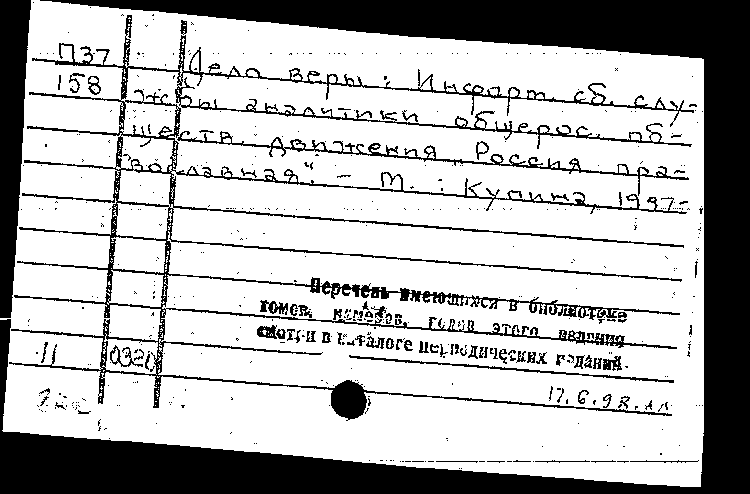 П37
158
Дело веры : Информ. сб. слу-
жбы аналитики общерос. об-
ществ. движения „Россия пра-
вославная“. – М. : Купина, 1997-
Перечень имеющихся в библиотеке
томов, номеров, годов этого издания
смотри в каталоге периодических изданий.
11 0320
17.6.98.